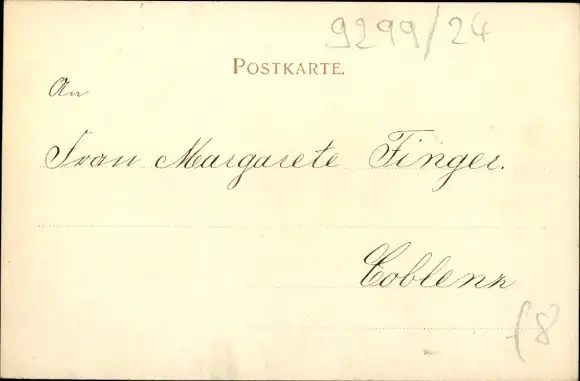 9299/24
POSTKARTE.
An
Frau Margarete Finger.
Coblenz
(8